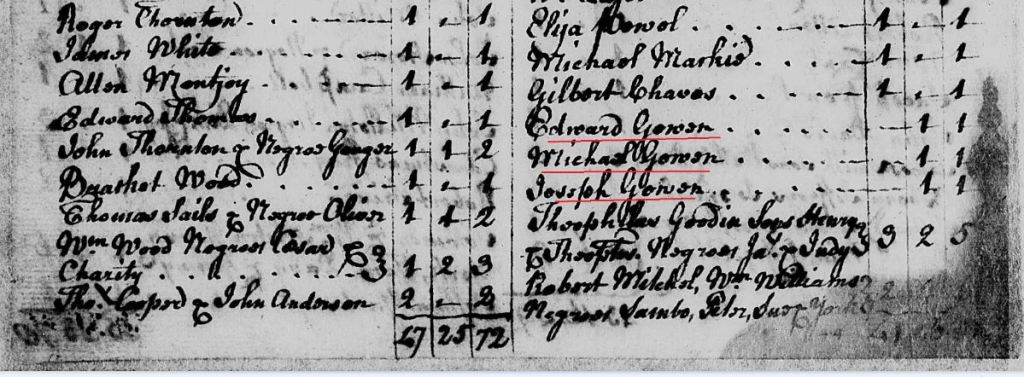 Roger Thornton . . . . . . 1 - 1
James White . . . . . . 1 - 1
Allen Montjoy . . . . . . 1 - 1
Edward Thomas . . . . . 1 - 1
John Thornton & Negroe Ganger 1 1 2
Wood . . . . . . 1 - 1
Thomas Sails & Negroe Oliver 1 1 2
Wm Wood Negroes Cesar &
Charity . . . . . . . . 1 2 3
Thos Cooper & John Anderson 2 - 2
47 25 72
Elija 1 - 1
Michael Mackie . . . . 1 - 1
Gilbert Chaves . . . . . 1 - 1
Edward Gowen . . . . . . 1 1
Michael Gowen . . . . . . 1 1
Joseph Gowen . . . . . . 1 1
Gordin Sons Henry
& Negroes Ja. & Judy 3 2 5
Robert Mitchel, Wm Williams
Negroes Sambo, Peter, Sue & York